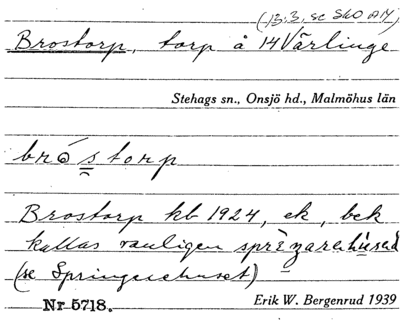 (13:3, se Sko A14)
Brostorp, torp å 14 Värlinge
Stehags sn., Onsjö hd., Malmöhus län
bróstorp
Brostorp kb 1924, ek, bek
kallas vanligen
(se Springarehuset)
Nr 5718.
Erik W. Bergenrud 1939